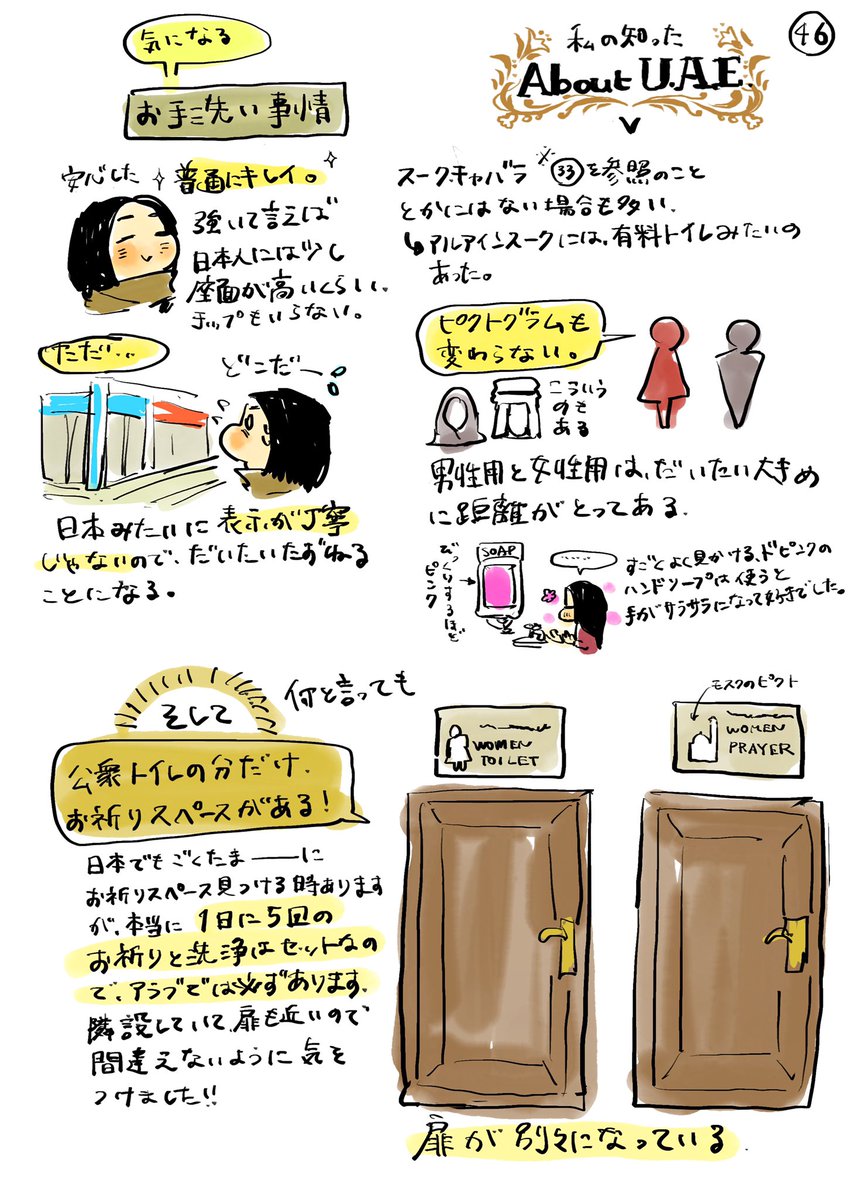 46
私の知った
About U.A.E.
気になる
お手洗い事情
安心した
普通にキレイ。
強いて言えば
日本人には少し
座面が高いくらい。
チップもいらない。
ただ...
どこだー
日本みたいに表示が丁寧
じゃないので、だいたいたずねる
ことになる。
スークチャバラ 33を参照のこと
とかにはない場合も多い。
アルアインスークには、有料トイレみたいの
あった。
ピクトグラムも
変わらない。
こういう
のも
ある
男性用と女性用は、だいたい大きめ
に距離がとってある。
SOAP
びっくりするほど
ピンク
すごくよく見かける、ドピンクの
ハンドソープは使うと
手がサラサラになって好きでした。
そして
何と言っても
公衆トイレの分だけ、
お祈りスペースがある!
日本でもごくたまーーーに
お祈りスペース見つける時あります
が、本当に1日に5回の
お祈りと洗浄はセットなの
で、アラブでは必ずあります。
隣設していて、扉も近いので
間違えないように気を
つけました!!
WOMEN
TOILET
モスクのピクト
WOMEN
PRAYER
扉が別々になっている